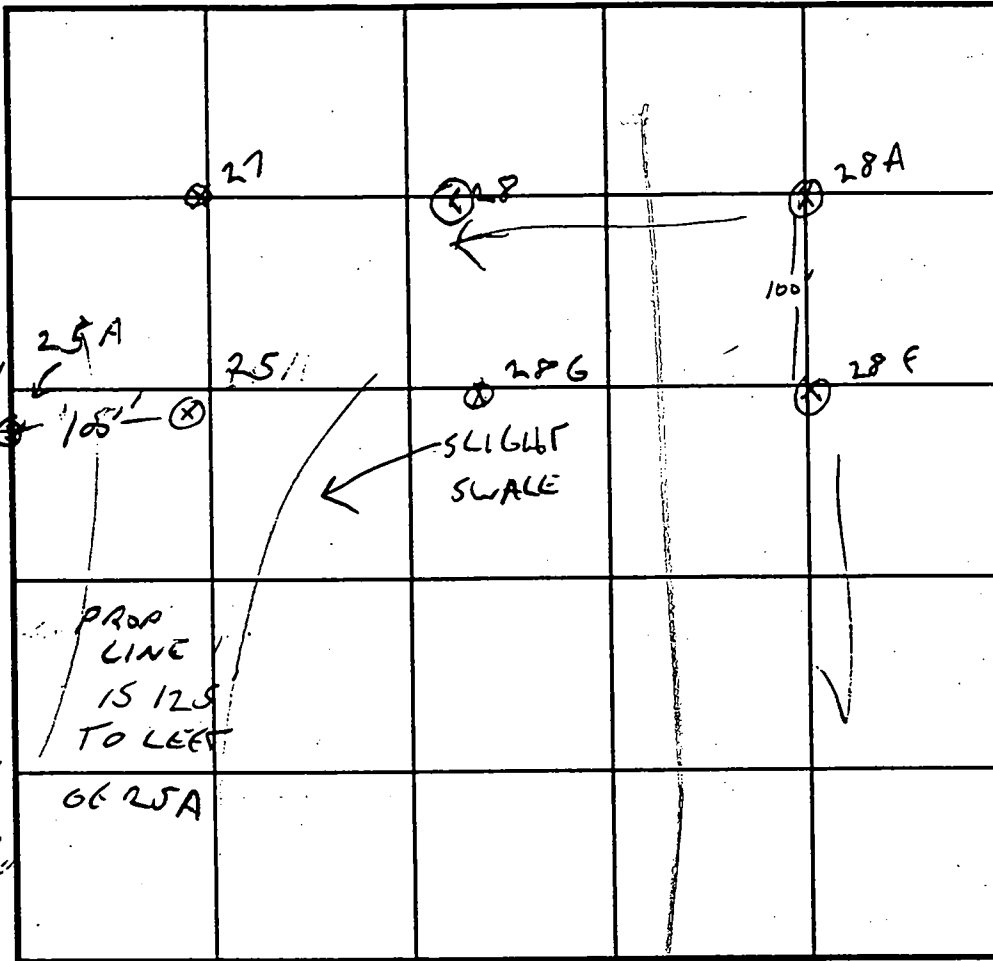 27
28
28A
100'
25A
25
28G
28F
100'
SLIGHT
SWALE
PROP
LINE
IS 125
TO LEFT
OF 25A